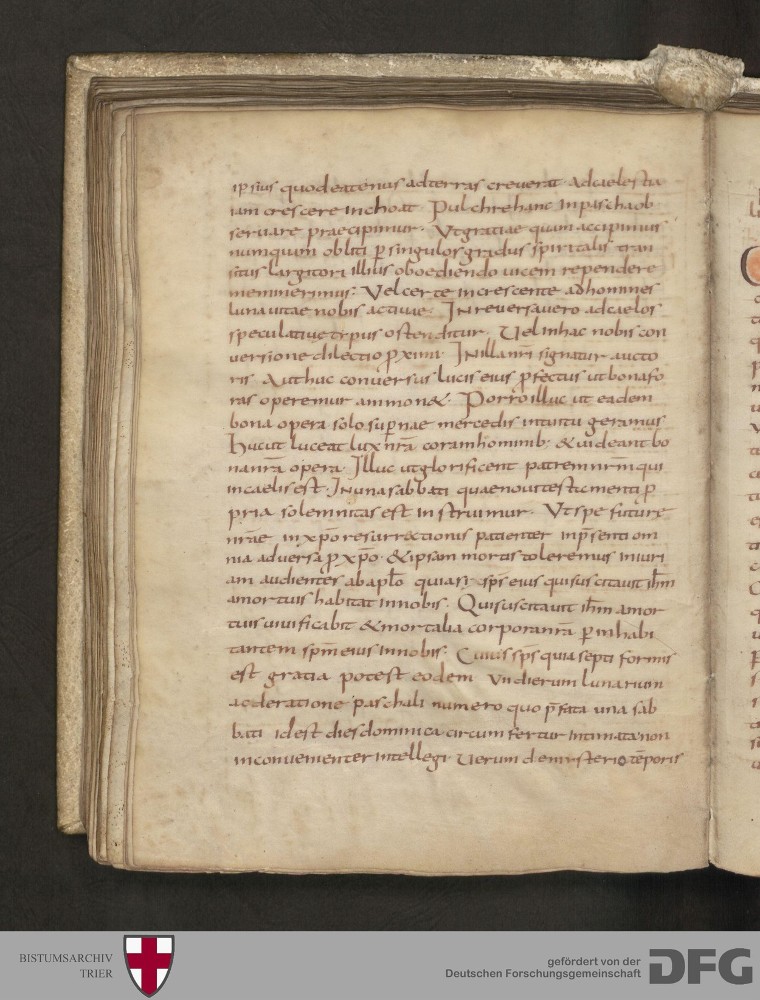 ipsius quod eatenus ad terras creverat. Ad caelestia
iam crescere inchoat. Pulchre hanc in pascha ob
servare praecipimur. Ut gratiae quam accipimus
numquam obliti p̄ singulos gradus spiritalis tran
situs largitori illius oboediendo vicem rependere
meminerimus. Vel certe in crescente ad homines
luna vitae nobis activae. In reversa vero ad caelos
speculative typus ostenditur. Vel in hac nobis con
versione dilectio proxima. In illa nr̄i signatur aucto
ris. Aut huc conversus lucis eius p̄fectus ut bona fo
ras operemur ammon&. Porro illuc ut eadem
bona opera solo sup̄nae mercedis intuitu geramus
huc ut luceat lux nr̄a coram hominib; & videant bo
na nr̄a opera. Illuc ut glorificent patrem nr̄m qui
in caelis est. In una sabbati quae novi testamenti p̄
pria solemnitas est instruimur. Ut spe future
nr̄ae in xp̄o resurrectionis patienter in p̄senti om
nia adversa p̄ xp̄o. & ipsam mortis toleremus iniuri
am audientes ab apl̄o quia si sp̄s eius qui suscitavit ih̄m
a mortuis habitat in nobis. Qui suscitavit ih̄m a mor
tuis vivificabit & mortalia corpora nr̄a p̄ inhabi
tantem sp̄m eius in nobis. Cuius sp̄s quia septiformis
est gratia potest eodem VII dierum lunarium
ac deratione paschali numero quo p̄fata una sab
bati id est dies dominica circumfertur intimata non
inconvenienter intellegi. Verum de mysterio tēporis
BISTUMSARCHIV
TRIER
gefördert von der
Deutschen Forschungsgemeinschaft
DFG